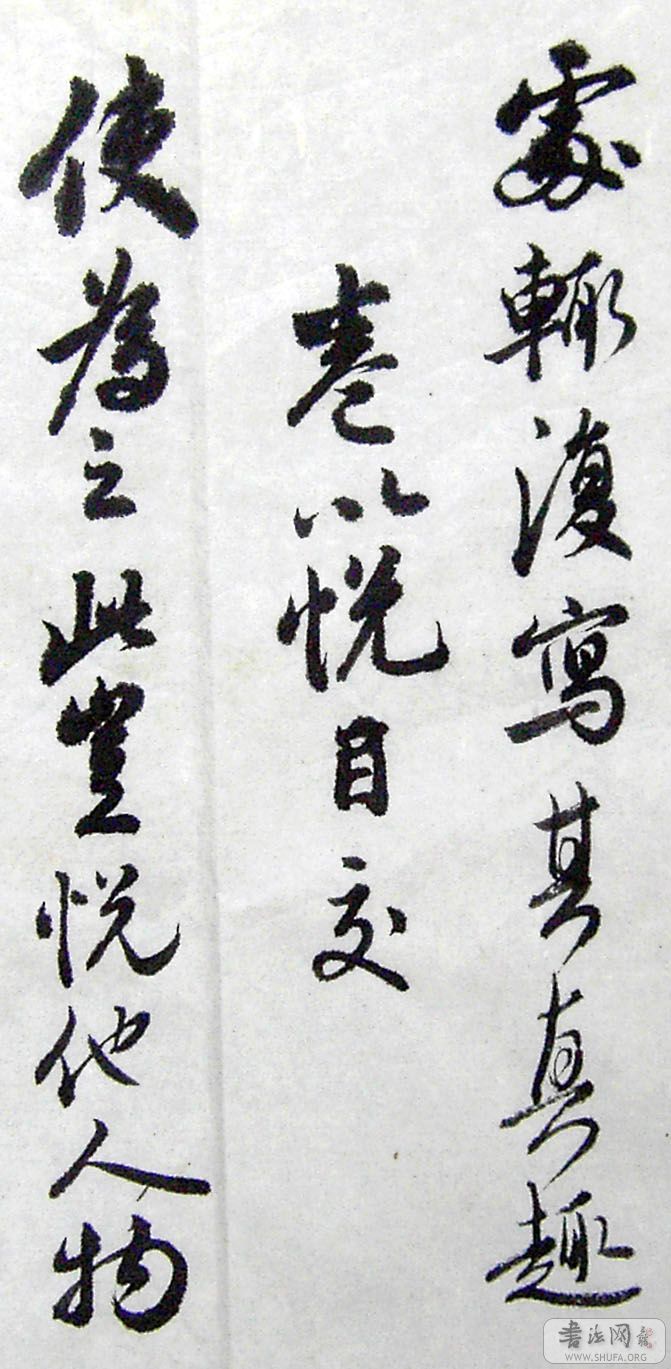 處輒復寫其真趣
卷以悅目交
使為之此豈悅他人物
書法网
WWW.SHUFA.ORG